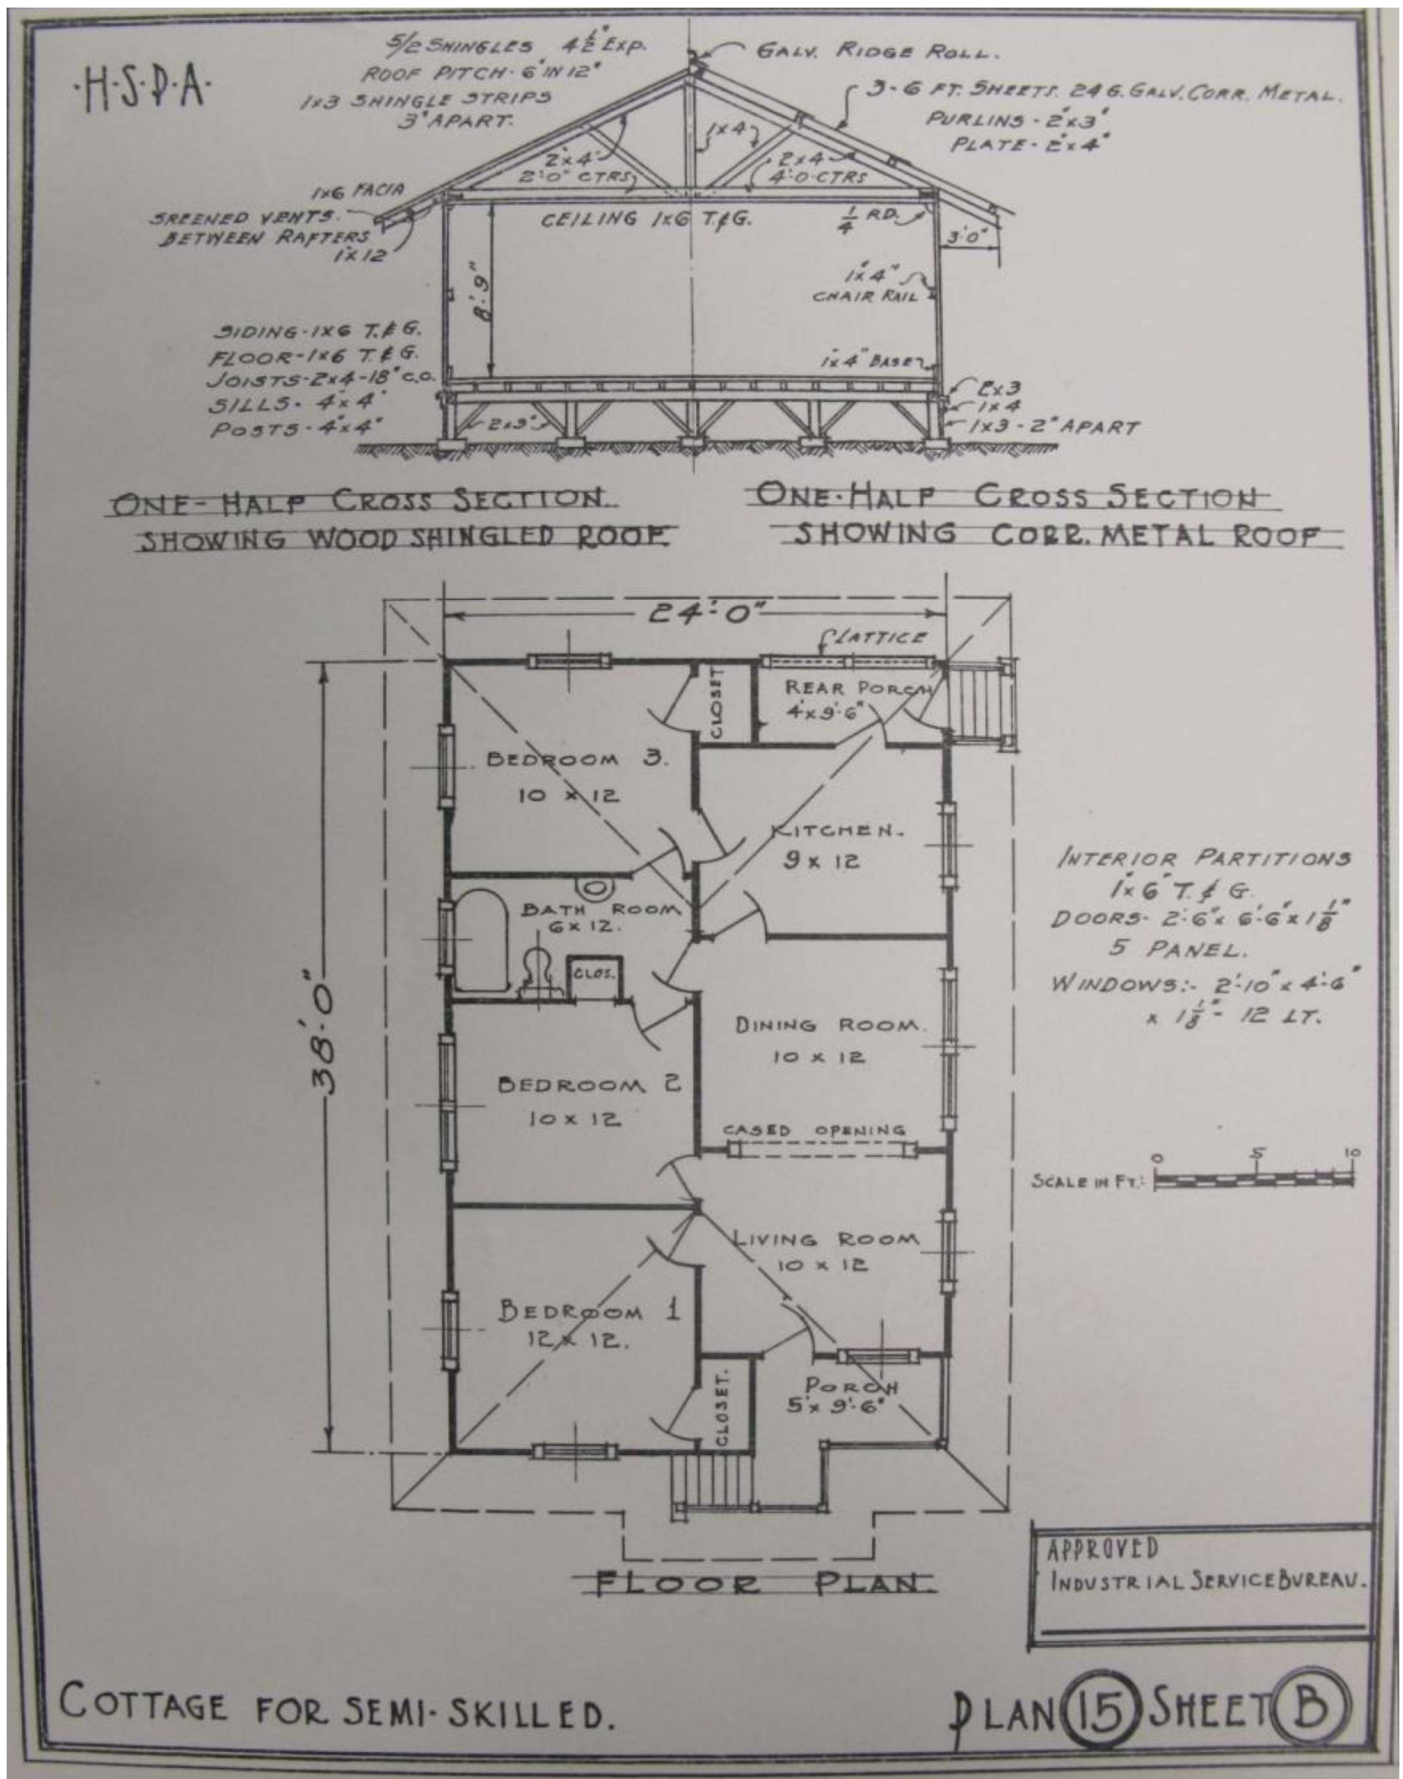 ·H·S·P·A·
5/2 SHINGLES 4½" EXP.
ROOF PITCH- 6" IN 12"
1x3 SHINGLE STRIPS
3" APART.
GALV. RIDGE ROLL.
3-6 FT. SHEETS. 24 G. GALV. CORR. METAL.
PURLINS - 2"x3"
PLATE - 2"x4"
1x4
2"x4"
2'-0" CTRS
2x4
4'-0 CTRS
1x6 FACIA
SREENED VENTS.
BETWEEN RAFTERS
1"x12
CEILING 1x6 T.&G.
¼ RD.
3'-0"
8'-9"
1"x4"
CHAIR RAIL
1"x4" BASE
SIDING-1x6 T.&G.
FLOOR-1x6 T.&G.
JOISTS-2x4-18" C.O.
SILLS- 4"x4"
POSTS-4"x4"
2x3"
2x3
1x4
1x3-2" APART
ONE-HALF CROSS SECTION.
SHOWING WOOD SHINGLED ROOF.
ONE-HALF CROSS SECTION
SHOWING CORR. METAL ROOF
24'-0"
LATTICE
CLOSET
REAR PORCH
4'x9'-6"
BEDROOM 3.
10 x 12
KITCHEN.
9 x 12
BATH ROOM
6x12.
CLOS.
38'-0"
DINING ROOM.
10 x 12
BEDROOM 2
10 x 12
CASED OPENING
LIVING ROOM
10 x 12
BEDROOM 1
12 x 12.
CLOSET.
PORCH
5'x 9'-6"
INTERIOR PARTITIONS
1"x6" T. & G.
DOORS- 2'-6"x 6'-6"x 1⅛"
5 PANEL.
WINDOWS:- 2'-10"x 4'-6"
x 1⅛"- 12 LT.
0 5 10
SCALE IN FT.:
FLOOR PLAN.
APPROVED
INDUSTRIAL SERVICE BUREAU.
COTTAGE FOR SEMI-SKILLED.
PLAN 15 SHEET B